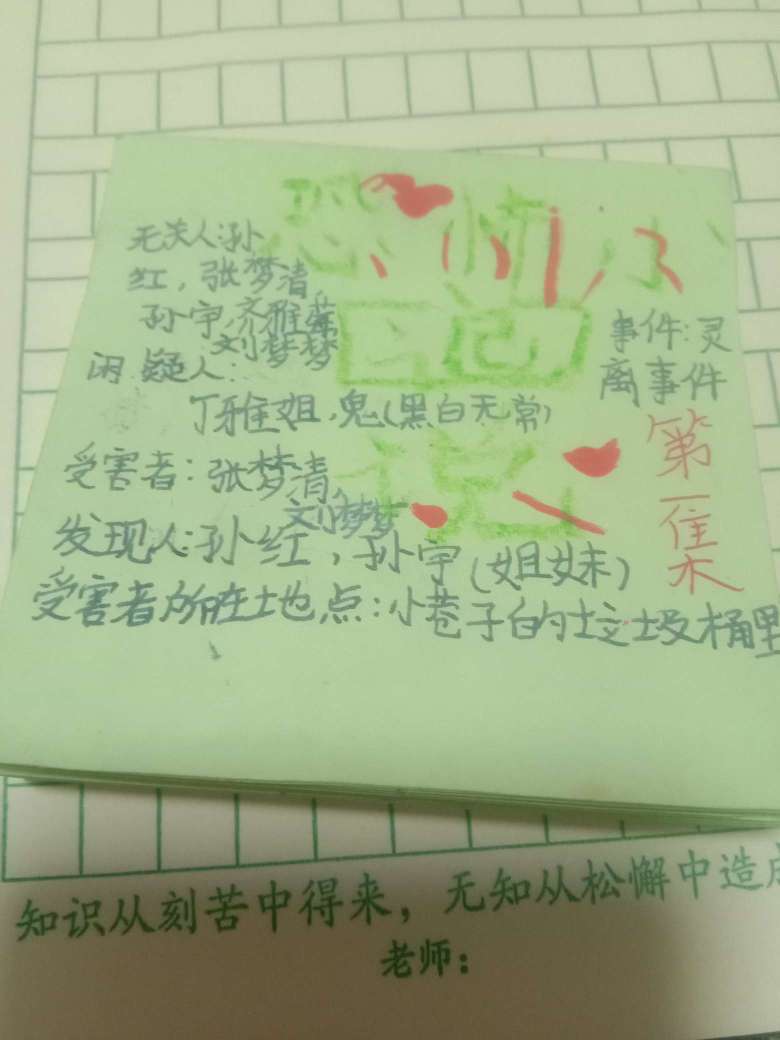 恐怖小
日记
说
无关人:孙
红，张梦清，
孙宇，齐雅蕾
刘梦梦
闲疑人:
丁雅姐，鬼(黑白无常)
受害者:张梦清，
刘梦梦
发现人:孙红，孙宇(姐妹)
受害者所在地点:小巷子的垃圾桶里
事件:灵
离事件
第
一集
知识从刻苦中得来，无知从松懈中造成
老师: